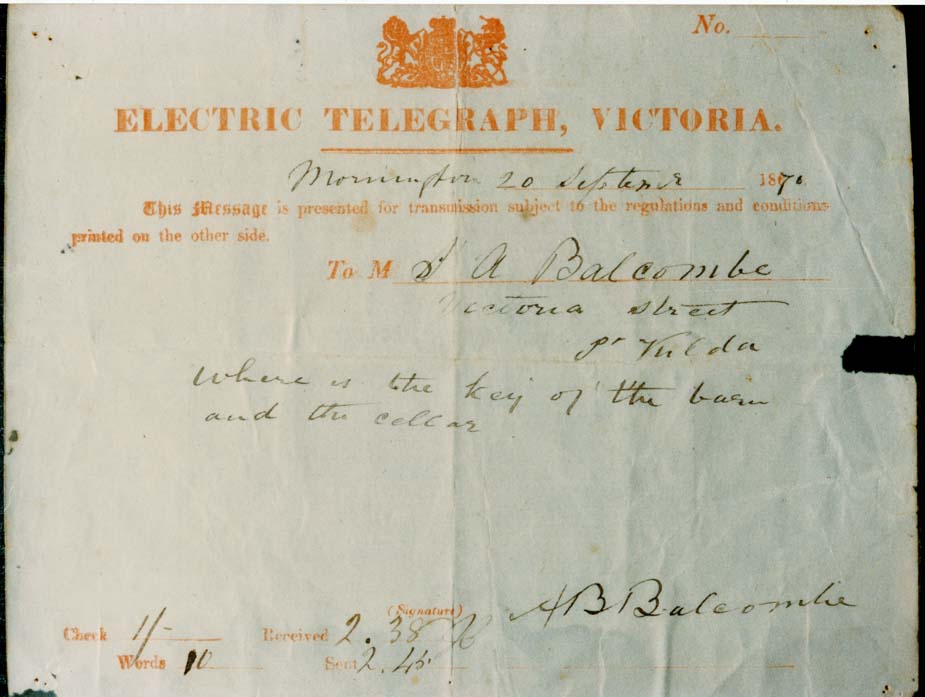 No.
ELECTRIC TELEGRAPH, VICTORIA.
Mornington 20 September 1870
This Message is presented for transmission subject to the regulations and conditions
printed on the other side.
To M A Balcombe
Victoria Street
St Kilda
Where is the key of the barn
and the cellar
(Signature)
A B Balcombe
Check 1/- Received 2.38
Words 10 Sent 2.45